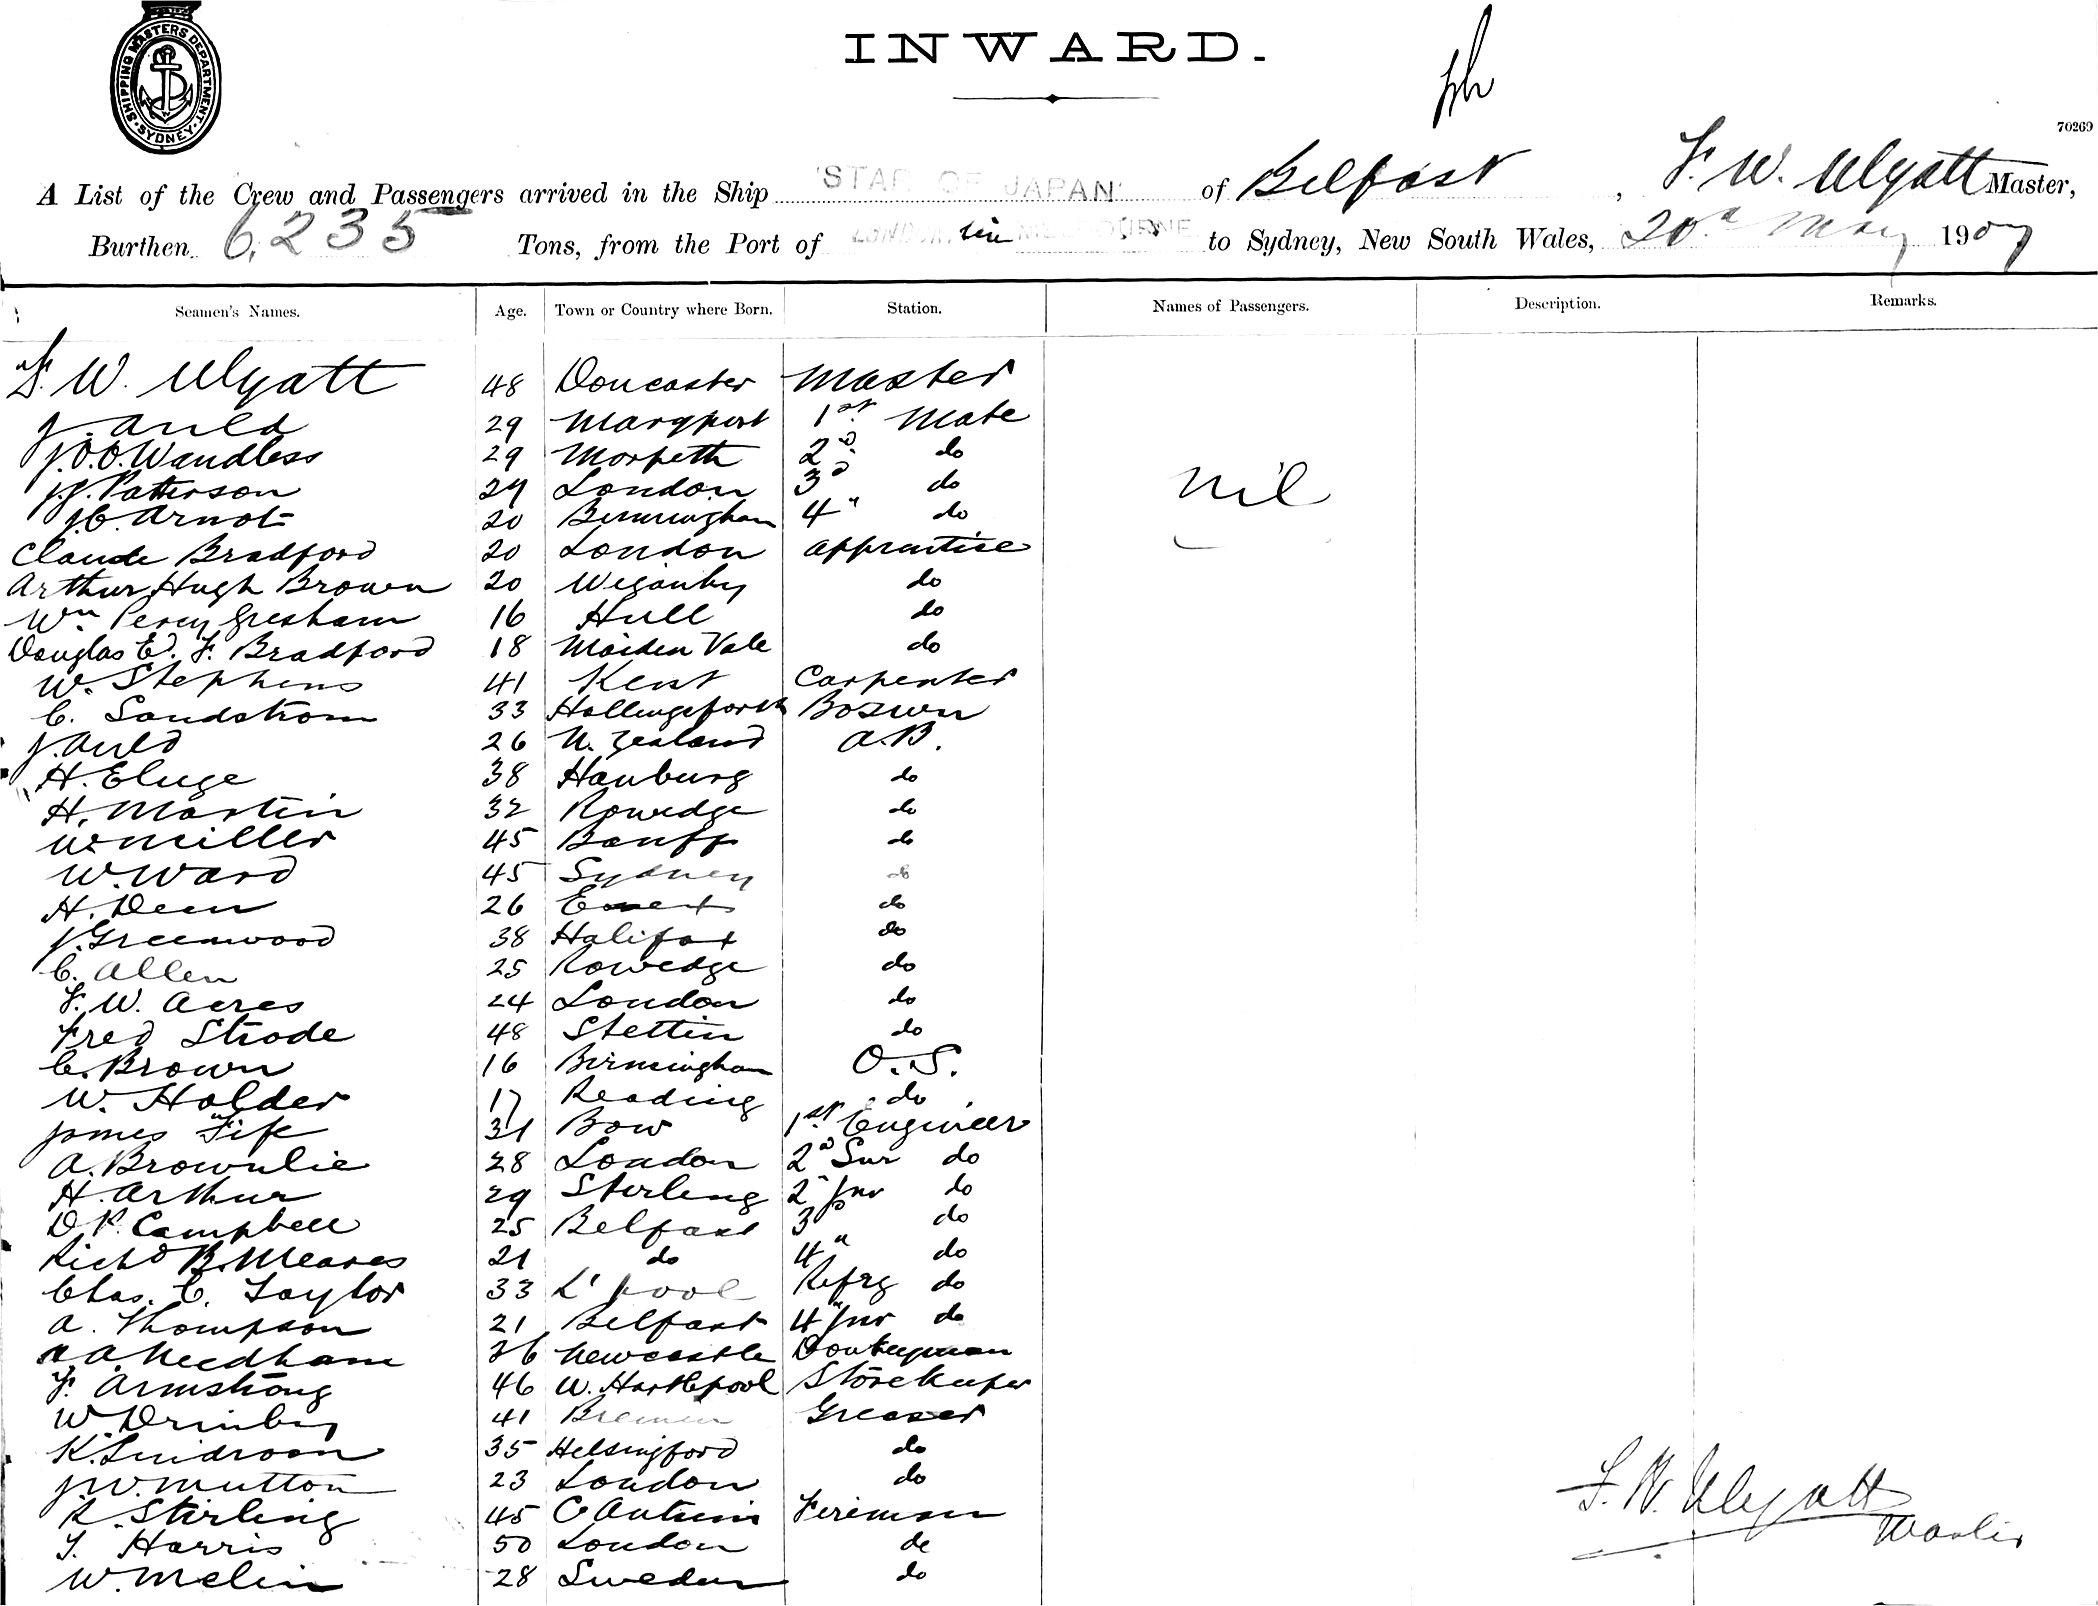 SHIPPING MASTERS DEPARTMENT. SYDNEY.
INWARD.
70269
A List of the Crew and Passengers arrived in the Ship 'STAR OF JAPAN' of Belfast, F. W. Wyatt Master,
Burthen 6,235 Tons, from the Port of LONDON via MELBOURNE to Sydney, New South Wales, 20th May 1907
Seamen's Names. Age. Town or Country where Born. Station. Names of Passengers. Description. Remarks.
F. W. Wyatt 48 Doncaster Master
J. Auld 29 Maryport 1st Mate
J.O.O. Wandless 29 Morpeth 2d do
J.J. Patterson 29 London 3d do
Nil
J.C. Arnot 20 Birmingham 4" do
Claude Bradford 20 London Apprentice
Arthur Hugh Brown 20 Wiganby do
Wm Percy Gresham 16 Hull do
Douglas E. F. Bradford 18 Maiden Vale do
W. Stephens 41 Kent Carpenter
C. Sandstrom 33 Hollingsforth Boswn
J. Auld 26 N. Zealand A.B.
H. Eluge 38 Hamburg do
H. Martin 32 Rowedge do
W. Miller 45 Banff do
W. Ward 45 Sydney do
H. Deen 26 do
J. Greenwood 38 Halifax do
C. Allen 25 Rowedge do
F. W. Acres 24 London do
Fred Strode 48 Stettin do
C. Brown 16 Birmingham O.S.
W. Holder 17 Reading do
James Fife 31 Bow 1st Engineer
A. Brownlie 28 London 2d Snr do
H. Arthur 29 Stirling 2" Jnr do
D. P. Campbell 25 Belfast 3d do
Richd B. Meares 21 do 4" do
Chas. C. Taylor 33 L'pool Refrg do
A. Thompson 21 Belfast 4" Jnr do
A. Needham 36 Newcastle Donkeyman
F. Armstrong 46 W. Hartlepool Storekeeper
W. 41 Bremen Greaser
K. Lindroom 35 Helsingford do
J.W. Mutton 23 London do
R. Stirling 45 C Antrim Fireman
T. Harris 50 London do
W. Melin 28 Sweden do
F. W. Wyatt
Master